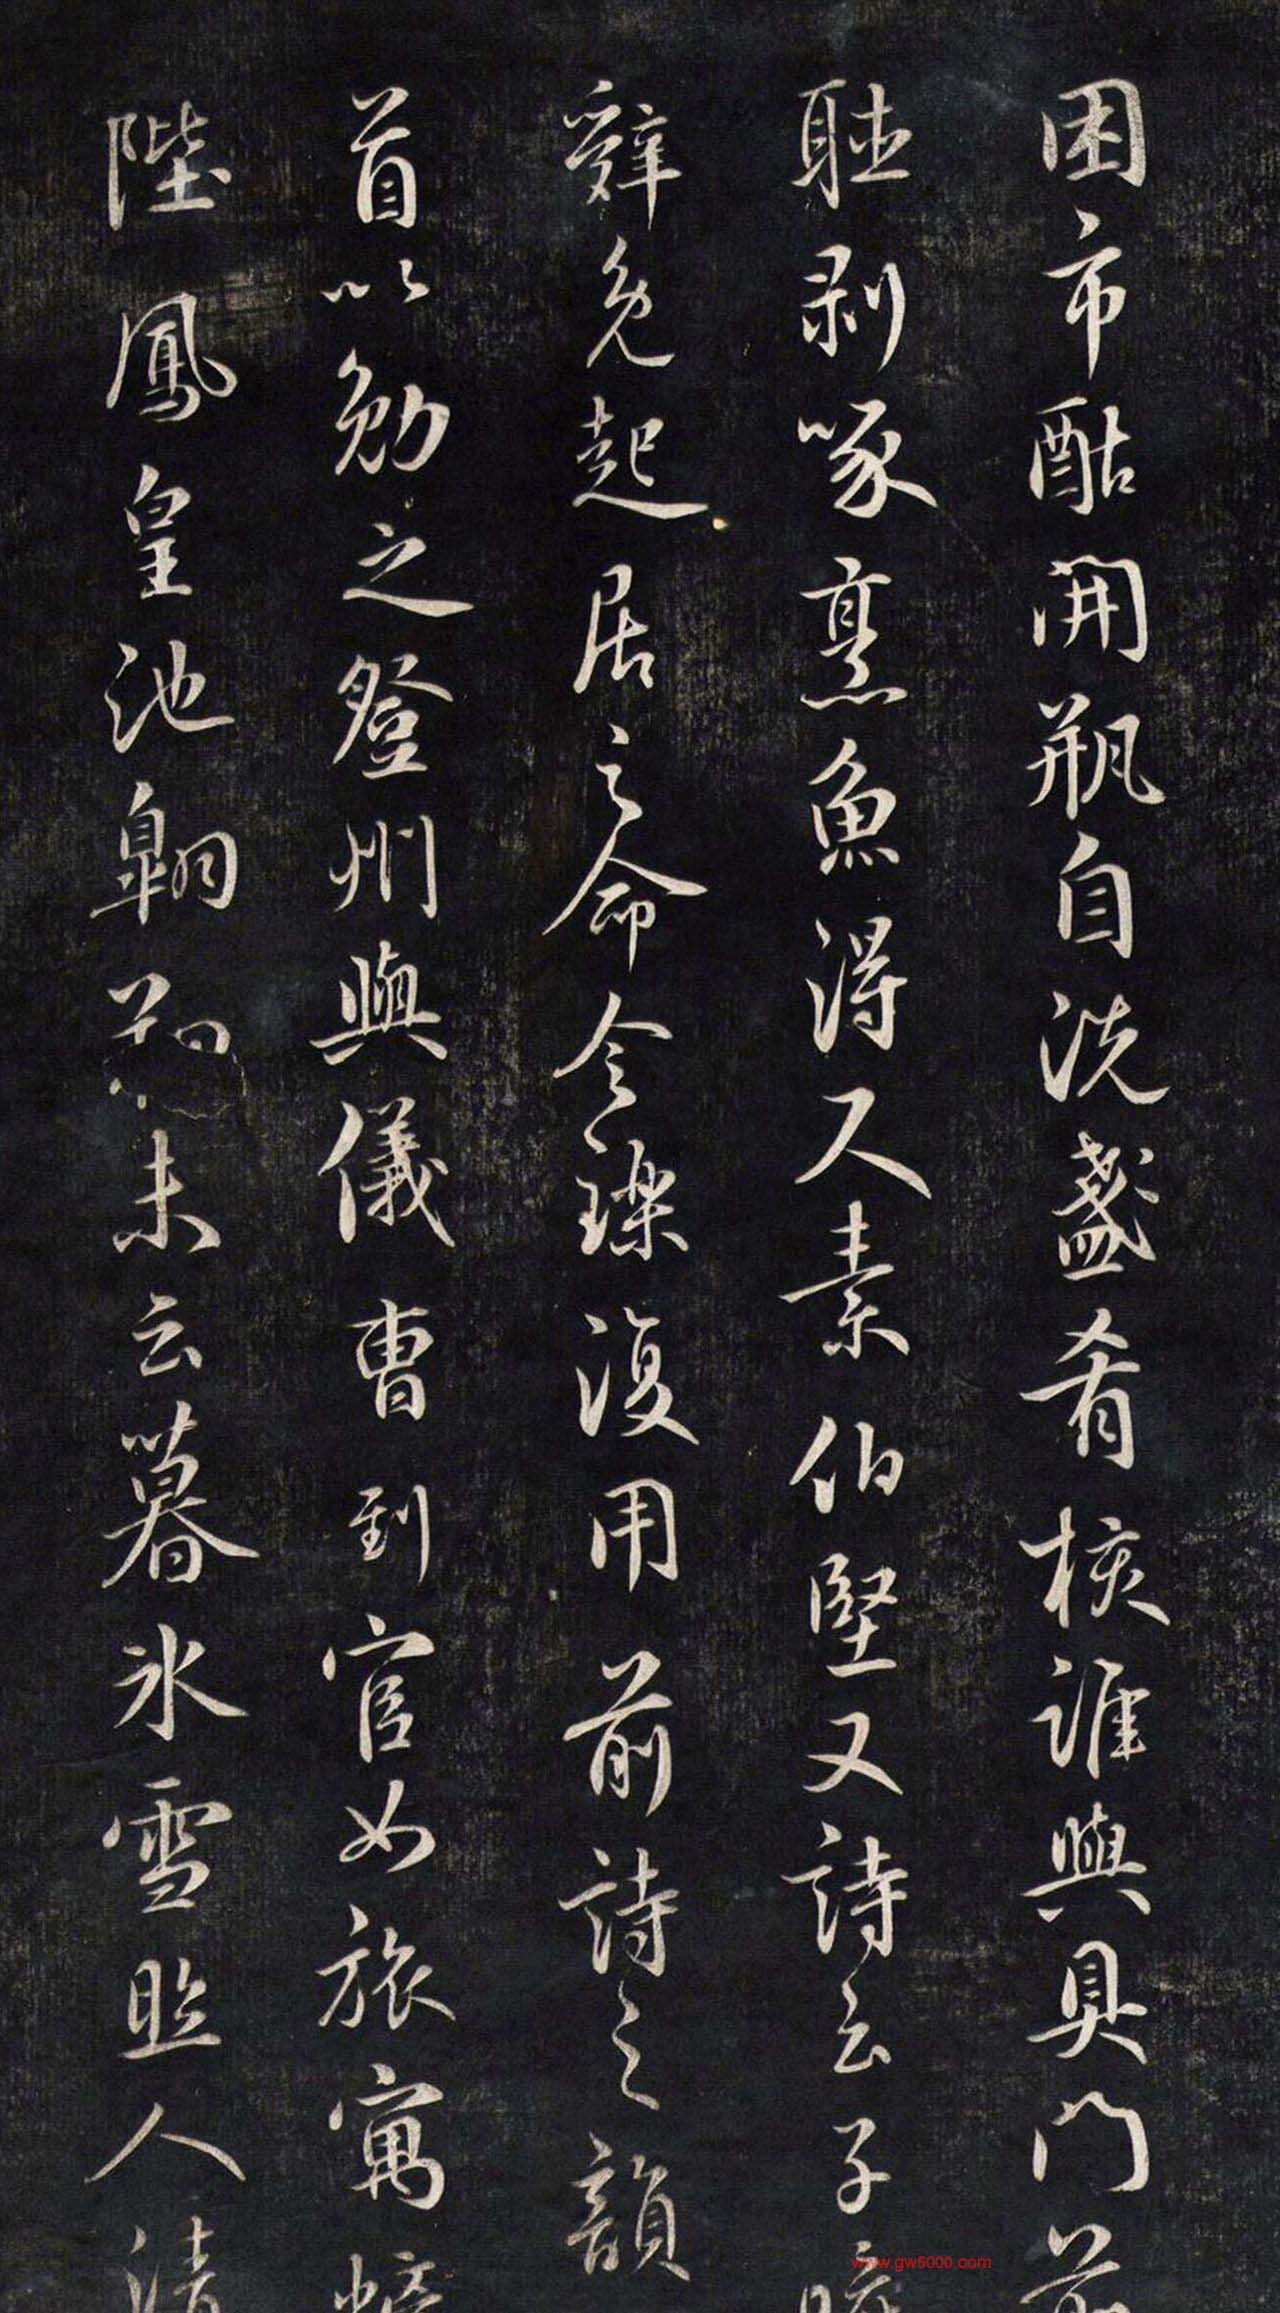 困市酤開瓶自洗盞肴核誰與具門前
聽剥啄烹魚得尺素伯堅又詩云子
辭免起居之命令璨復用前詩之韻
首以勉之登州與儀曹到官如旅寓
陛鳳皇池翱未云暮冰雪照人清
www.gw5000.com